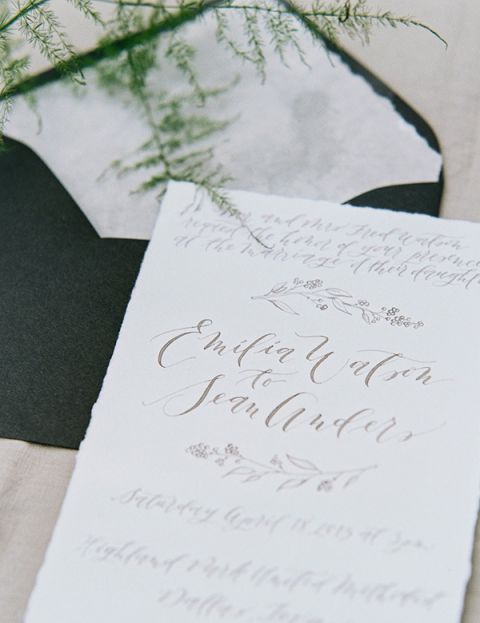 and Mrs Fred Watson
request the honor of your presence
at the marriage of their daughter
Emilia Watson
to
Sean Anders
Saturday April 18, 2015 at 3pm
Highland Park United Methodist
Dallas, Texas